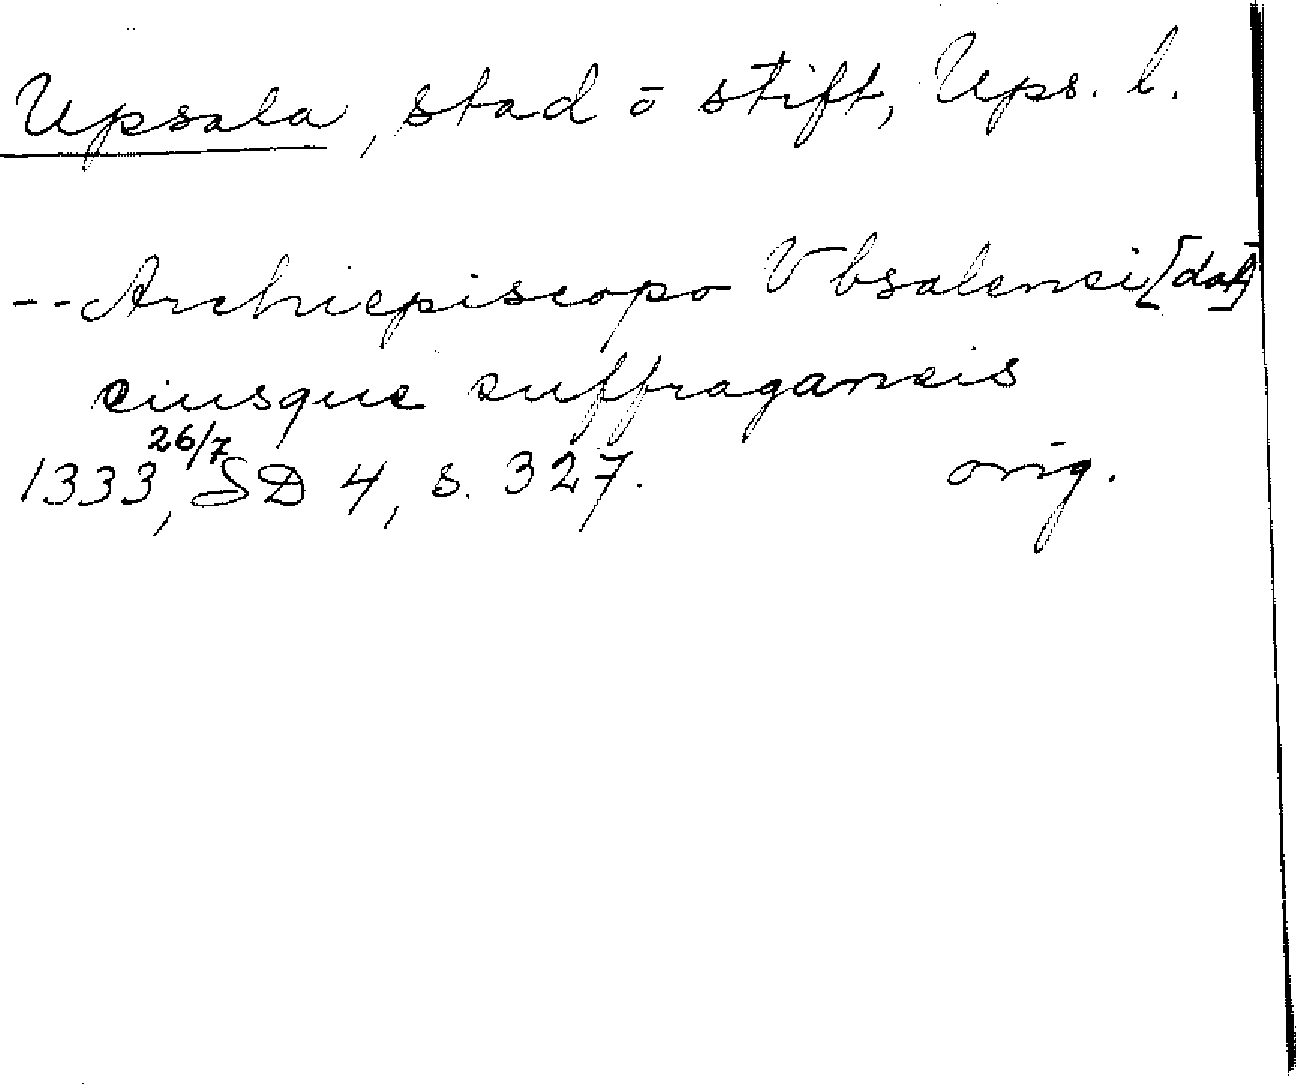 Upsala, stad ō stift, Ups. l.
-- Archiepiscopo Vbsalensi [dat]
eiusque suffraganeis
1333 26/7, SD 4, s. 327. orig.